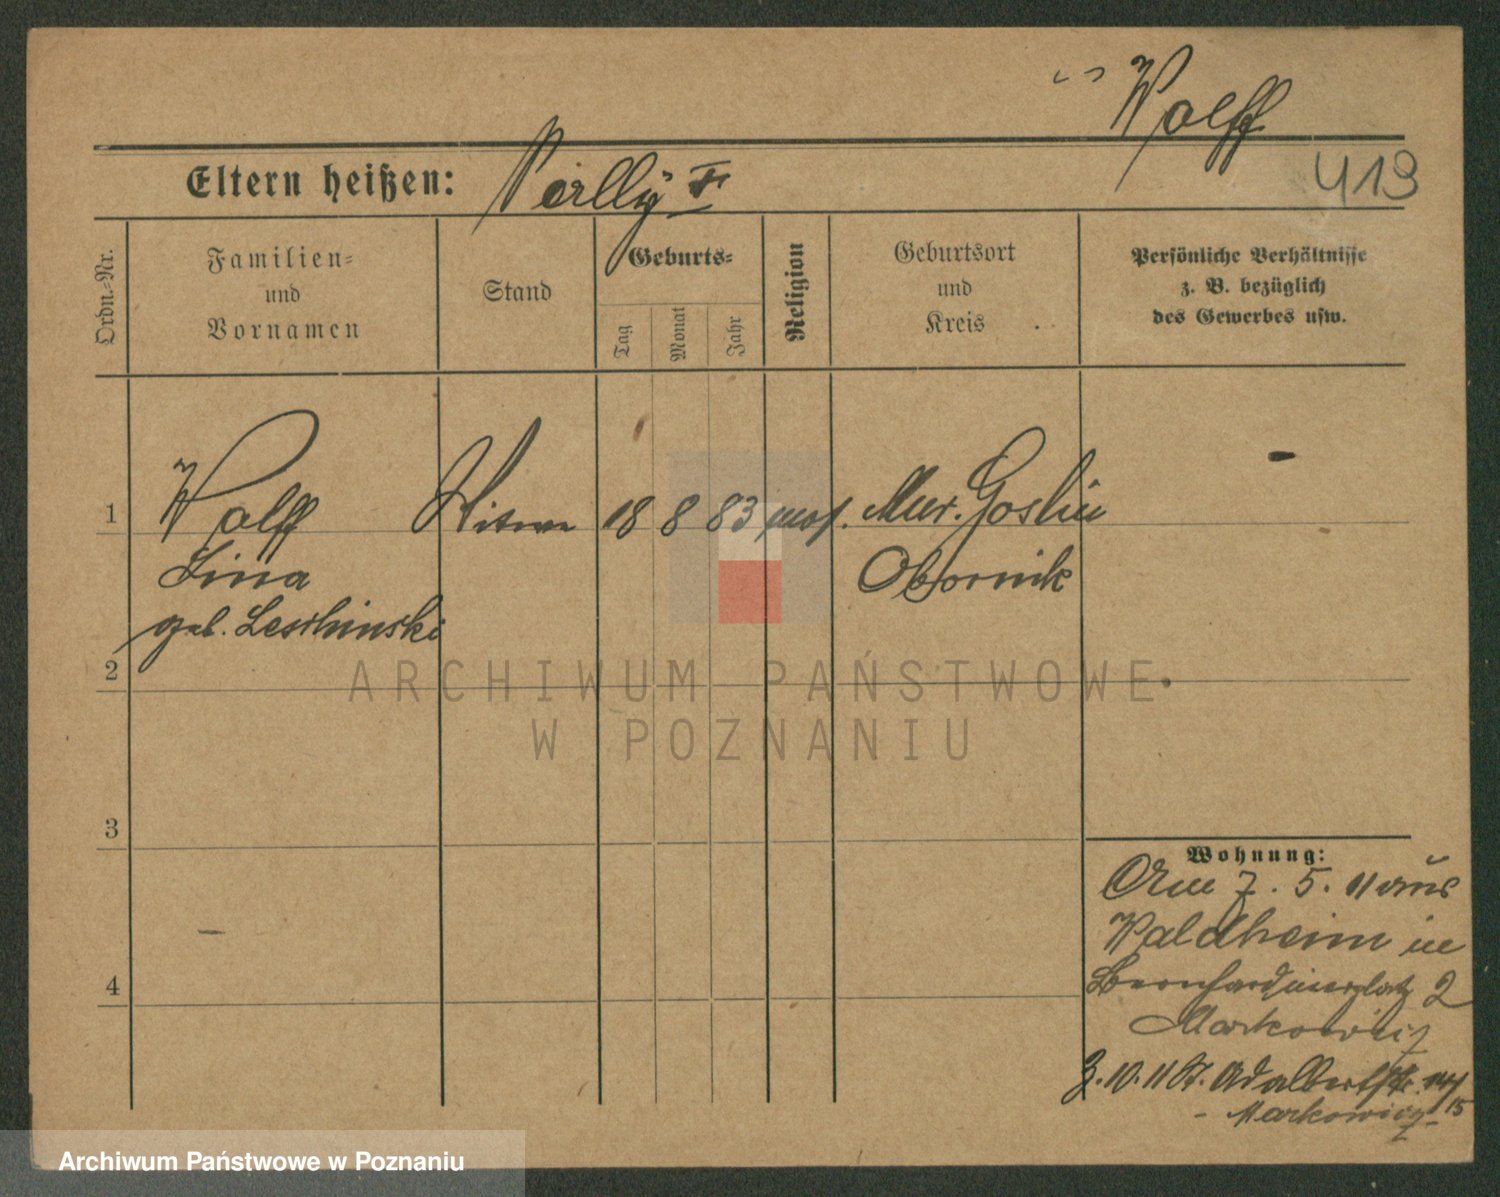 Wolff
413
Eltern heißen: Willy
Ordn.-Nr.
Familien-
und
Vornamen
Stand
Geburts-
Tag
Monat
Jahr
Religion
Geburtsort
und
Kreis
Persönliche Verhältnisse
z. B. bezüglich
des Gewerbes usw.
1
Wolff Witwe 18 8 83 mos. Mur. Goslin
Lina Obornik
geb. Leschinski
2
3
4
Wohnung:
Am 7. 5. 11 aus
Waldheim in
Bernhardinerplatz 2
Markowicz
3. 10. 11 St. Adalbertstr. 14/15
- Markowicz -
ARCHIWUM PAŃSTWOWE
W POZNANIU
Archiwum Państwowe w Poznaniu